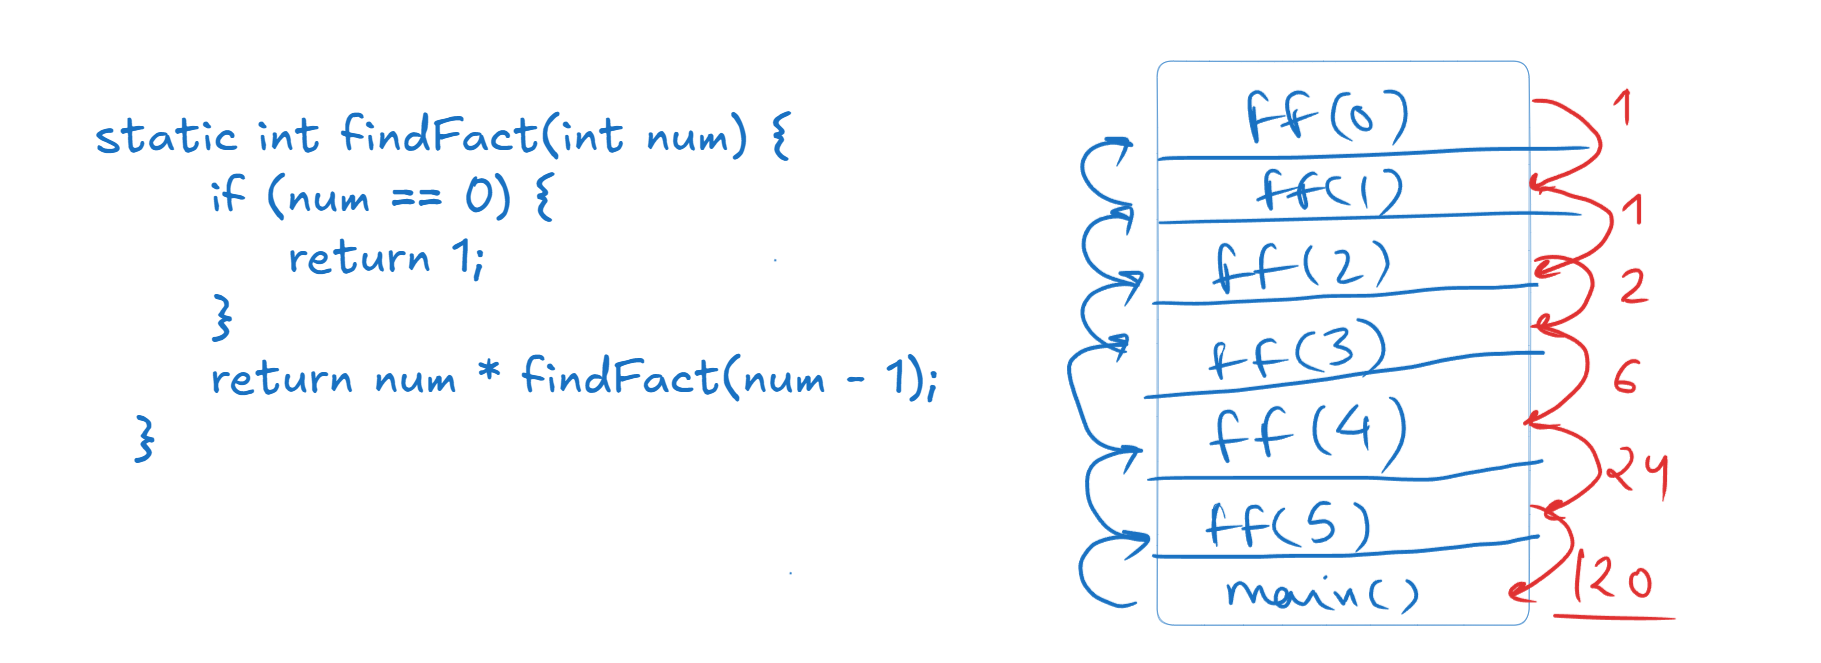 static int findFact(int num) {
if (num == 0) {
return 1;
}
return num * findFact(num - 1);
}
ff(0)
1
ff(1)
1
ff(2)
2
ff(3)
6
ff(4)
24
ff(5)
120
main()